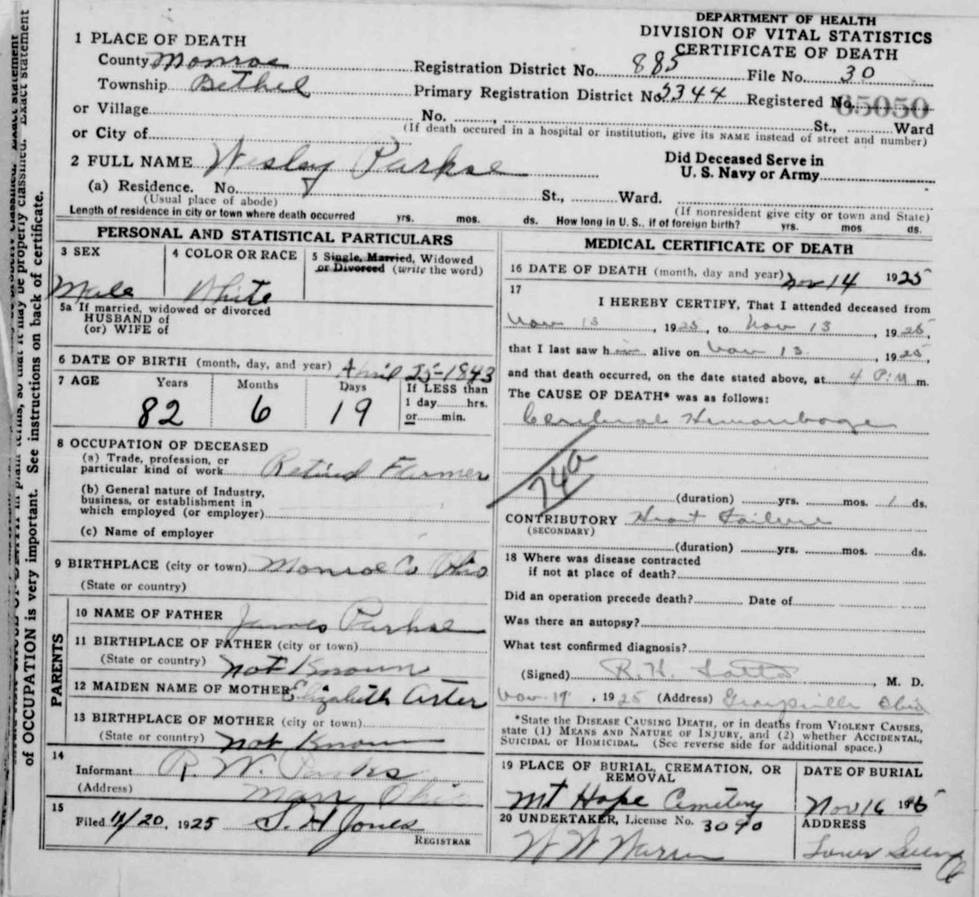 DEPARTMENT OF HEALTH
DIVISION OF VITAL STATISTICS
CERTIFICATE OF DEATH
1 PLACE OF DEATH
County Monroe Registration District No. 885 File No. 30
Township Bethel Primary Registration District No. 5344 Registered No. 65050
or Village No. St., Ward
or City of (If death occured in a hospital or institution, give its NAME instead of street and number)
2 FULL NAME Wesley Parkse
Did Deceased Serve in
U. S. Navy or Army
(a) Residence. No. St., Ward.
(Usual place of abode) (If nonresident give city or town and State)
Length of residence in city or town where death occurred yrs. mos. ds. How long in U. S., if of foreign birth? yrs. mos ds.
PERSONAL AND STATISTICAL PARTICULARS
3 SEX 4 COLOR OR RACE 5 Single, Married, Widowed
or Divorced (write the word)
Male White
5a If married, widowed or divorced
HUSBAND of
(or) WIFE of
6 DATE OF BIRTH (month, day, and year) April 25-1843
7 AGE Years Months Days If LESS than
1 day hrs.
or min.
82 6 19
8 OCCUPATION OF DECEASED
(a) Trade, profession, or
particular kind of work Retired Farmer
(b) General nature of Industry,
business, or establishment in
which employed (or employer)
(c) Name of employer
9 BIRTHPLACE (city or town) Monroe Co Ohio
(State or country)
PARENTS
10 NAME OF FATHER James Parkse
11 BIRTHPLACE OF FATHER (city or town)
(State or country) Not Known
12 MAIDEN NAME OF MOTHER Elizabeth
13 BIRTHPLACE OF MOTHER (city or town)
(State or country) Not Known
14
Informant R. W. Parks
(Address) Ohio
15
Filed 11/20, 1925 S. H Jones
REGISTRAR
MEDICAL CERTIFICATE OF DEATH
16 DATE OF DEATH (month, day and year) Nov 14 1925
17
I HEREBY CERTIFY, That I attended deceased from
Nov 13, 1925, to Nov 13, 1925,
that I last saw him alive on Nov 13, 1925,
and that death occurred, on the date stated above, at 4 P.M m.
The CAUSE OF DEATH* was as follows:
Cerebral Hemorrhage
74a
(duration) yrs. mos. 1 ds.
CONTRIBUTORY Heart Failure
(SECONDARY)
(duration) yrs. mos. ds.
18 Where was disease contracted
if not at place of death?
Did an operation precede death? Date of
Was there an autopsy?
What test confirmed diagnosis?
(Signed) R. H. , M. D.
Nov 19, 1925 (Address) Graysville Ohio
*State the DISEASE CAUSING DEATH, or in deaths from VIOLENT CAUSES,
state (1) MEANS AND NATURE OF INJURY, and (2) whether ACCIDENTAL,
SUICIDAL or HOMICIDAL. (See reverse side for additional space.)
19 PLACE OF BURIAL, CREMATION, OR
REMOVAL
DATE OF BURIAL
Mt Hope Cemetery Nov 16 1925
20 UNDERTAKER, License No. 3090 ADDRESS
W W Warren Lower
of OCCUPATION is very important. See instructions on back of certificate.